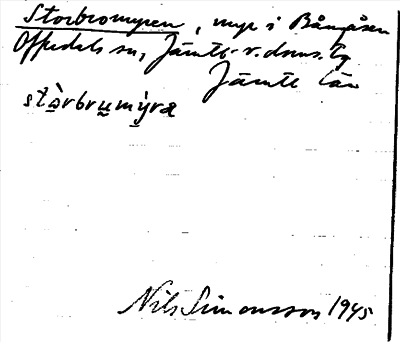 Storbromyren, myr i Bångåsen
Offerdals sn, Jämtl. v. doms. tg
Jämtl län
stàrbrumỳræ
Nils Simonsson 1945